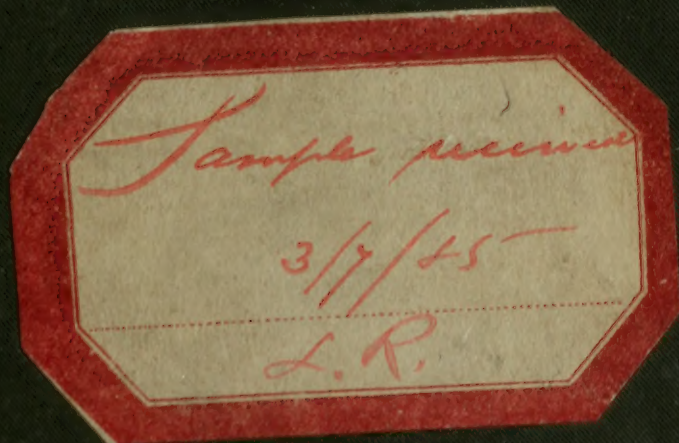 Sample received
3/7/45
L.R.